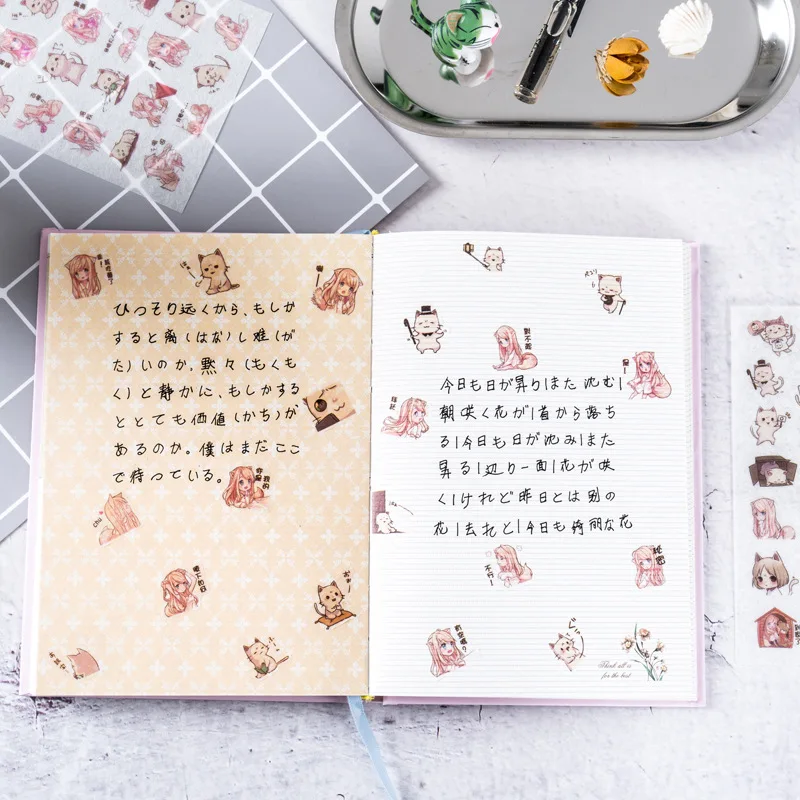 ひっそり远くから、もしか
すると离(はな)し难(が
た)いのか。黙々(もくも
く)と静かに、もしかする
ととても価値(かち)が
あるのか。僕はまだここ
で待っている。
chu
今日も日が昇り|また沈む|
朝咲く花が|首から落ち
る|今日も日が沈み|また
昇る|辺り一面|花が咲
く|けれど昨日とは别の
花|去れと|今日も綺丽な花
對不起
不行
秘密
Think all is
for the best